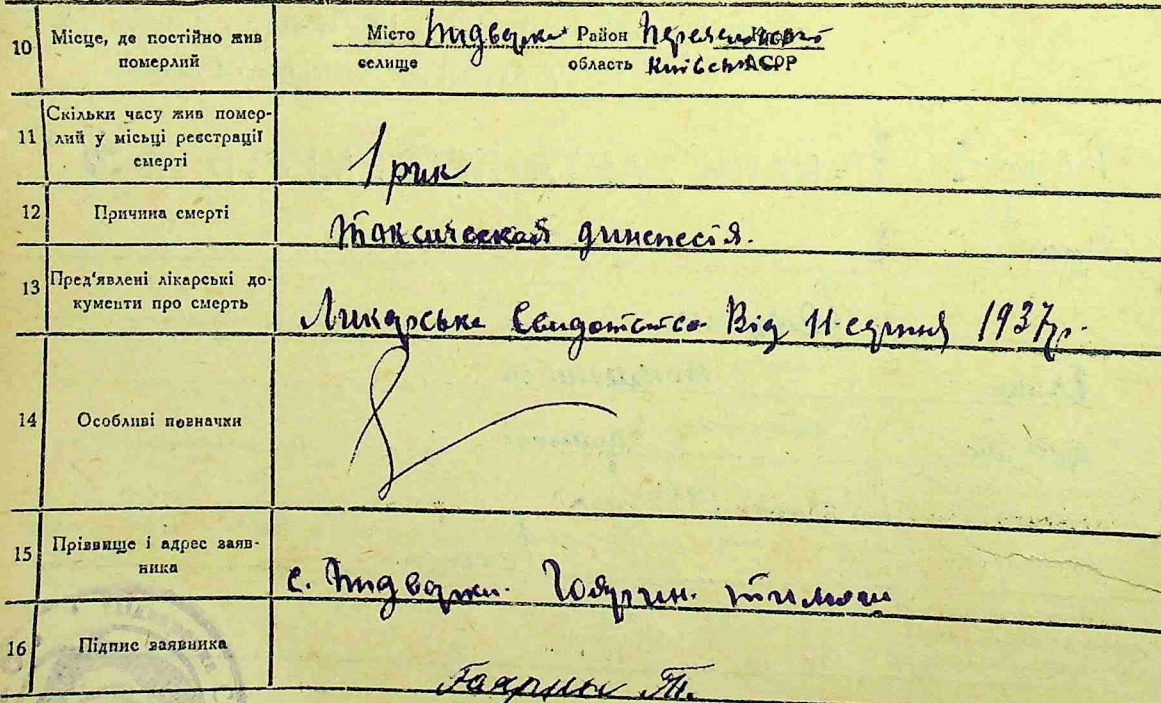 10 Місце, де постійно жив померлий
Місто Пидварки Район Переяславский
селище область Київська АСРР
11 Скільки часу жив помер-
лий у місьці реєстрації
смерті
1 рик
12 Причина смерті
Таксическая динспесія.
13 Пред'явлені лікарські до-
кументи про смерть
Ликарська Свидотство Від 11 серпня 1937р.
14 Особливі позначки
15 Прізвище і адрес заяв-
ника
с. Пидварки.
16 Підпис заявника
Т.